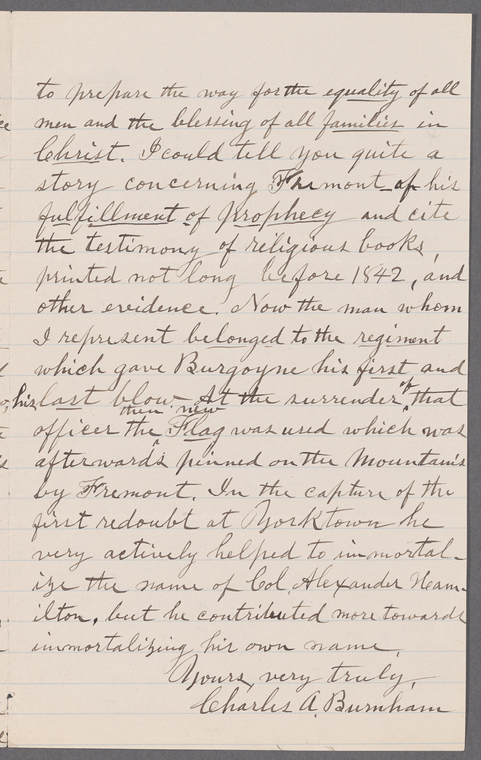 to prepare the way for the equality of all
men and the blessing of all families in
Christ. I could tell you quite a
story concerning Fremont of his
fulfillment of prophecy and cite
the testimony of religious books,
printed not long before 1842, and
other evidence. Now the man whom
I represent belonged to the regiment
which gave Burgoyne his first and
his last blow. At the surrender of that
officer the then new Flag was used which was
afterwards pinned on the Mountains
by Fremont. In the capture of the
first redoubt at Yorktown he
very actively helped to immortal-
ize the name of Col. Alexander Ham-
ilton, but he contributed more towards
immortalizing his own name.
Yours, very truly,
Charles A. Burnham